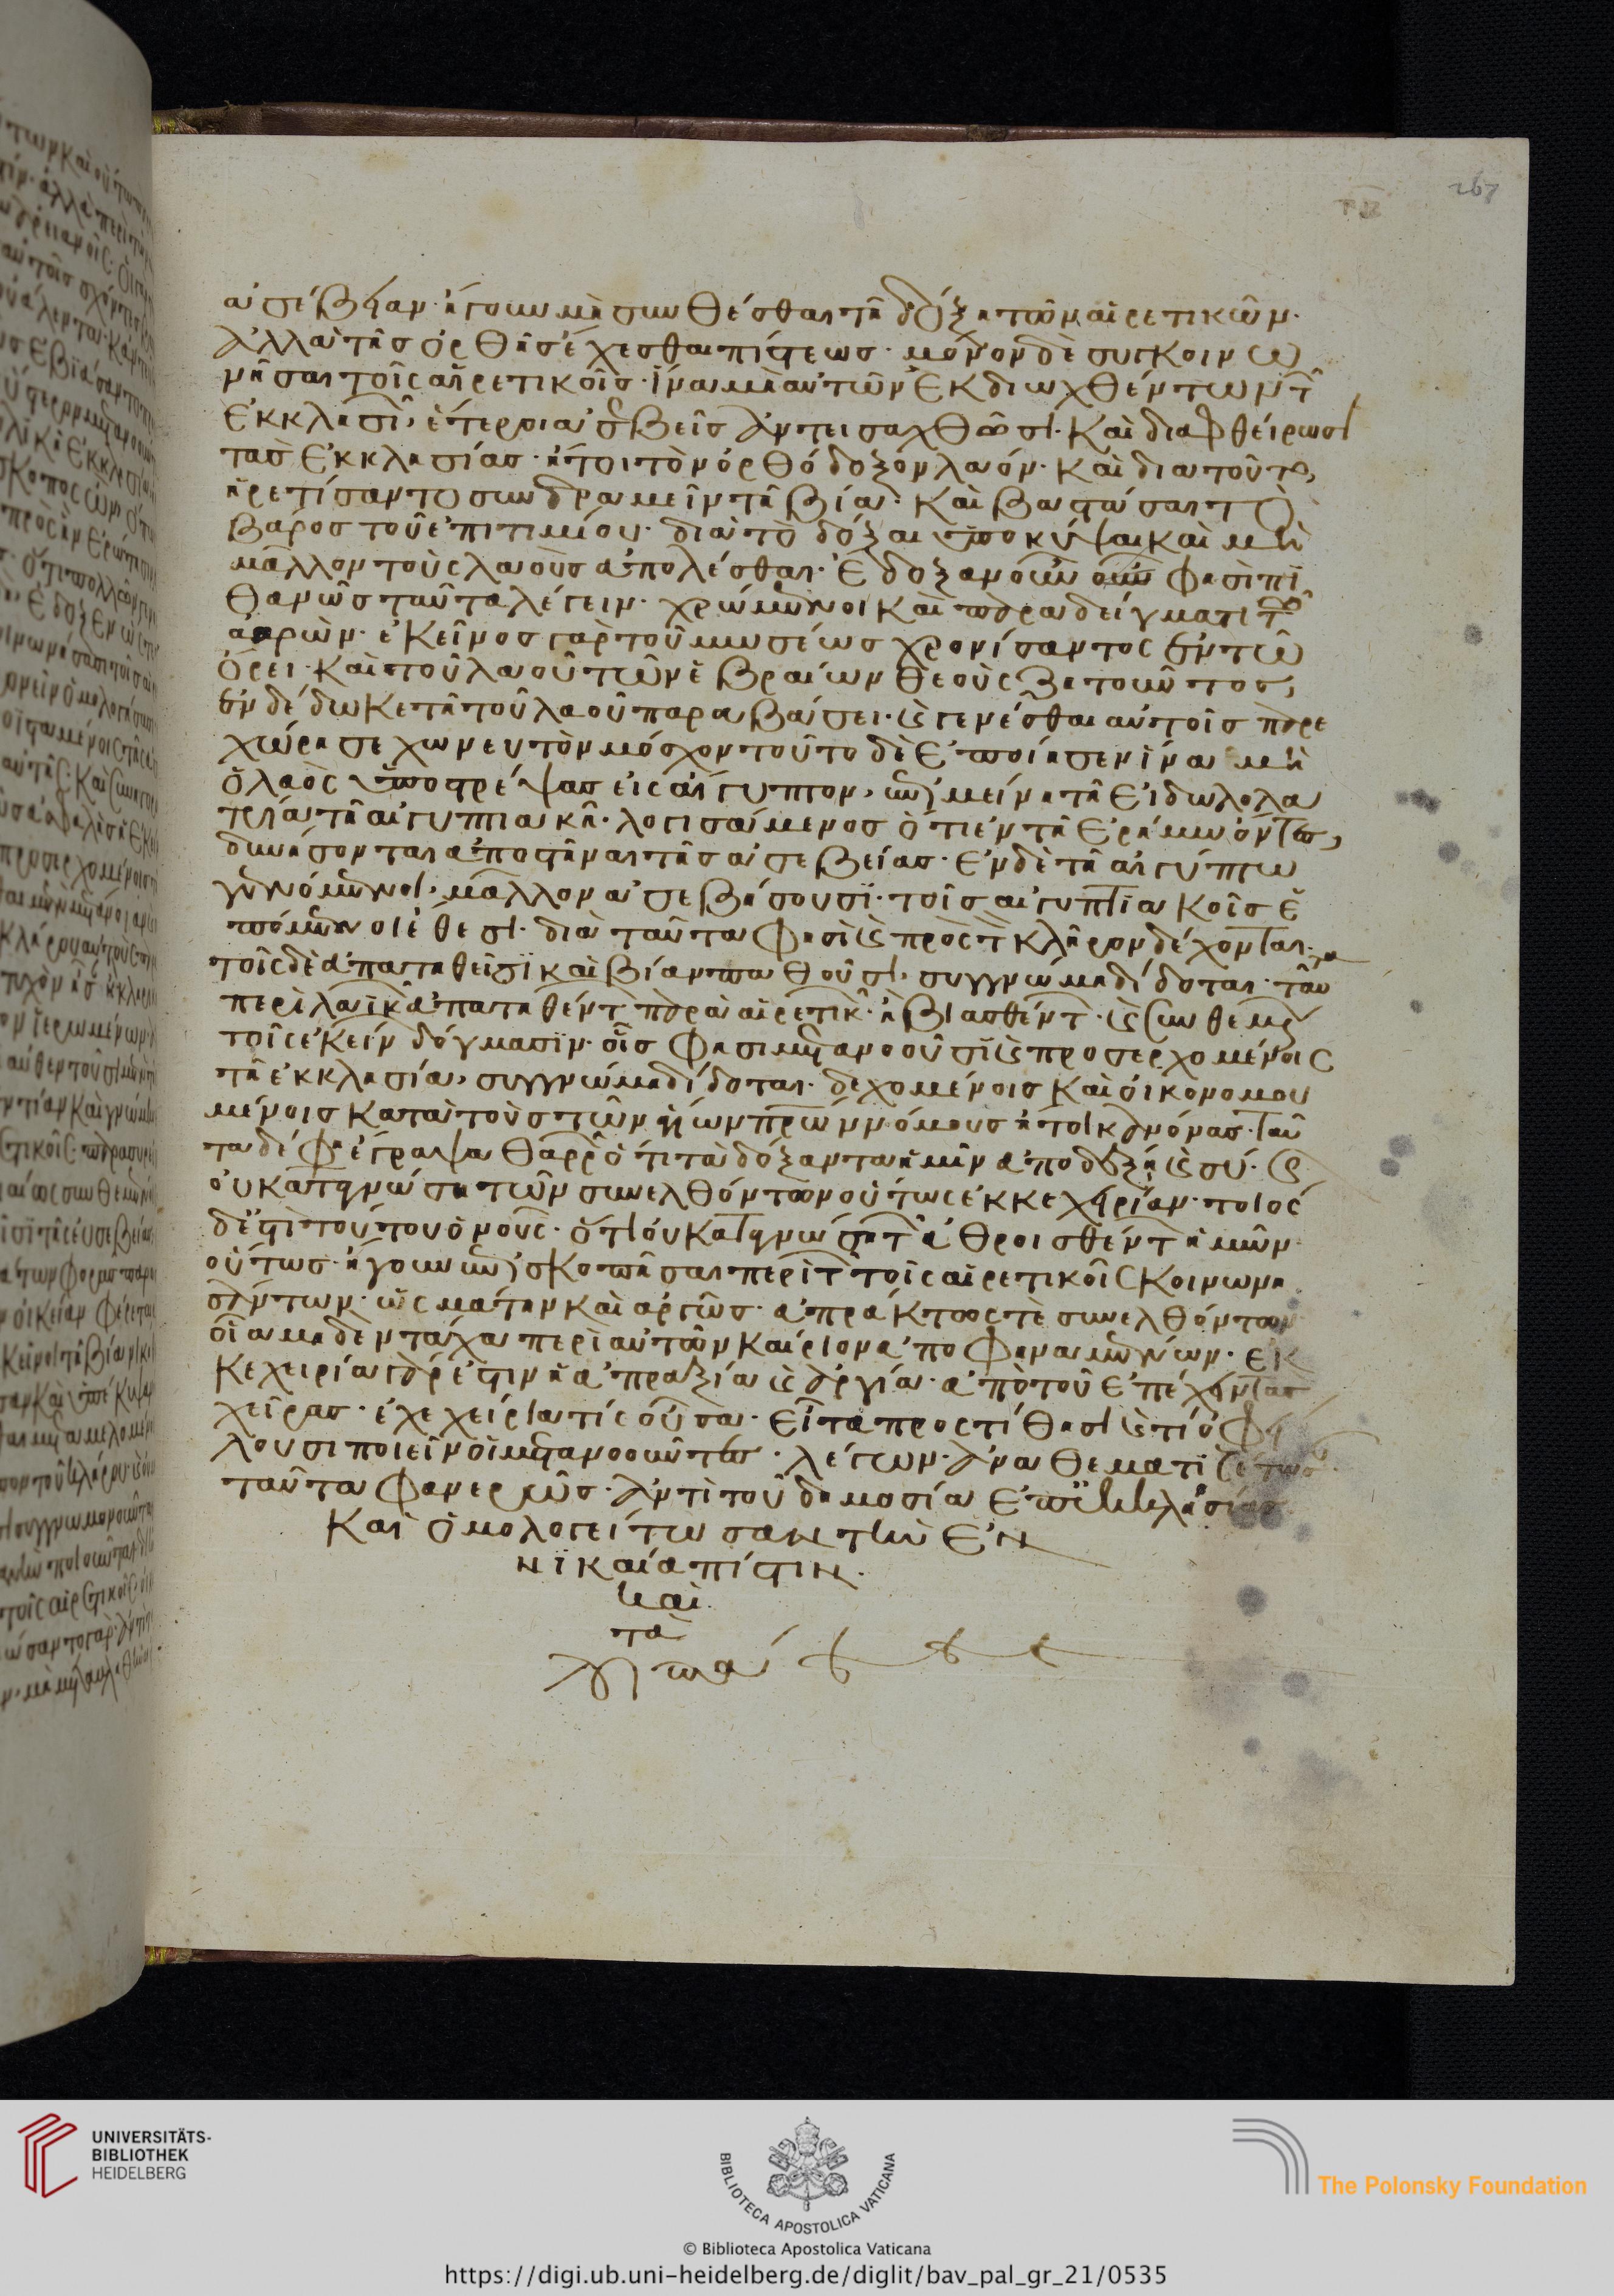 267
ἀσέβειαν· ἤγουν μὴ συνθέσθαι τῇ δόξῃ τῶν αἱρετικῶν·
ἀλλὰ τῆς ὀρθῆς ἔχεσθαι πίστεως· μόνον δὲ συγκοινω
νῆσαι τοῖς αἱρετικοῖς· ἵνα μὴ αὐτῶν ἐκδιωχθέντων τ
ἐκκλησι, ἕτεροι ἀσεβεῖς ἀντεισαχθῶσι· καὶ διαφθείρωσι
τὰς ἐκκλησίας· ἤτοι τὸν ὀρθόδοξον λαόν· καὶ διὰ τοῦτο,
ᾑρετίσαντο συνδραμεῖν τῇ βίᾳ· καὶ βαστάσαι τὸ
βάρος τοῦ ἐπιτιμίου· διὰ τὸ δόξαι ὑποκύψαι καὶ μὴ
μᾶλλον τοὺς λαοὺς ἀπολέσθαι· ἔδοξαν οὖν φησὶ πι
θανῶς ταῦτα λέγειν· χρώμενοι καὶ παραδείγματι τῷ
ἀαρών· ἐκεῖνος γὰρ τοῦ μωσέως χρονίσαντος ἐν τῷ
ὄρει· καὶ τοῦ λαοῦ τῶν ἑβραίων θεοὺς ζητοῦντος,
ἐνδέδωκε τῇ τοῦ λαοῦ παραβάσει· καὶ γενέσθαι αὐτοῖς παρε
χώρησε χωνευτὸν μόσχον τοῦτο δὲ ἐποίησεν ἵνα μὴ
ὁ λαὸς ὑποστρέψας εἰς αἴγυπτον, ἐμμείνῃ τῇ εἰδωλολα
τρείᾳ τῇ αἰγυπτιακῇ· λογισάμενος ὅτι ἐν τῇ ἐρήμῳ ὄντες,
δυνήσονται ἀποστῆναι τῆς ἀσεβείας· ἐν δὲ τῇ αἰγύπτῳ
γενόμενοι, μᾶλλον ἀσεβήσουσι· τοῖς αἰγυπτιακοῖς ἑ
πόμενοι ἔθεσι· διὰ ταῦτα φησὶ καὶ πρὸς τ κλῆρον δέχονται·
τοῖς δὲ ἀπατηθεῖσι καὶ βίαν παθοῦσι, συγγνώμη δίδοται· ταῦτα
περὶ λαϊκῶ ἀπατηθέντ παρὰ αἱρετικ· ἢ βιασθέντ· καὶ συνθεμέν
τοῖς ἐκείν δόγμασιν· οἷς φησι μετανοοῦσι καὶ προσερχομένοις
τῇ ἐκκλησίᾳ, συγγνώμη δίδοται· δεχομένοις καὶ οἰκονομου
μένοις κατὰ τοὺς τῶν ἁγίων πρων νόμους ἤτοι κανόνας· ταῦ
τα δέ φη ἔγραψα θαρρῶ ὅτι τὰ δόξαντα ἡμῖν ἀποδέξῃ καὶ σύ·
οὐ καταγνώσῃ τῶν συνελθόντων οὕτως ἐκκεχειρίαν· ποῖός
δέ ἐστι τούτου ὁ νοῦς· ὅτι οὐ καταγνώσῃ τῶ ἀθροισθέντ ἡμῶν
οὕτως· ἤγουν ἐν σκοπῆσαι περὶ τ τοῖς αἱρετικοῖς κοινωνη
σάντων· ὡς μάτην καὶ ἀργῶς· ἀπράκτως τὲ συνελθόντων
οἷα μηδεν τάχα περὶ αὐτῶν καίριον ἀποφηναμένων· ἐκ
κεχειρία γάρ ἐστιν ἡ ἀπραξία καὶ ἀργία· ἀπὸ τοῦ ἐπέχεινtας
χεῖρας· ἐχεχείρια τίς οὖσα· εἶτα προστίθησι καὶ τί ὀφεί
λουσι ποιεῖν οἱ μετανοοῦντες· λέγων· ἀναθεματιζέτως
ταῦτα φανερῶς· ἀντὶ τοῦ δημοσίᾳ ἐπ ἐκκλησίας
Καὶ ὁμολογείτωσαν τὴν ἐν
νικαίᾳ πίστιν·
καὶ
τὰ
λειπά
UNIVERSITÄTS-
BIBLIOTHEK
HEIDELBERG
BIBLIOTECA APOSTOLICA VATICANA
The Polonsky Foundation
© Biblioteca Apostolica Vaticana
https://digi.ub.uni-heidelberg.de/diglit/bav_pal_gr_21/0535